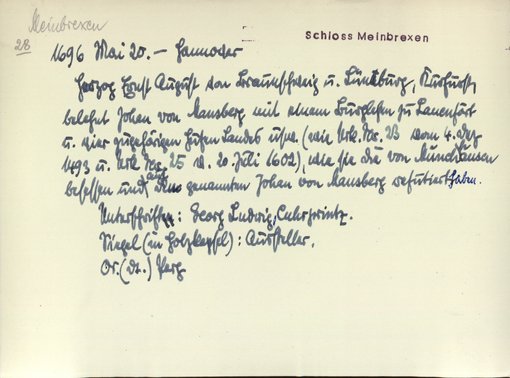 Meinbrexen
28
Schloss Meinbrexen
1696 Mai 20. – Hannover
Herzog Ernst August von Braunschweig u. Lüneburg, Kurfürst,
belehnt Johan von Mansberg mit einem Burglehen zu Lauenfört
u. vier zugehörigen Hufen Landes usw. (wie Urk. Nr. 23 vom 4. Dez
1493 u. Urk. Nr. 25 v. 20. Juli 1602), wie sie die von Münchhausen
besessen und auf den genannten Johan von Mansberg refutiert haben.
Unterschriften: Georg Ludwig, Cuhrprintz.
Siegel (in Holzkapsel): Aussteller.
Or. (dt.) Perg